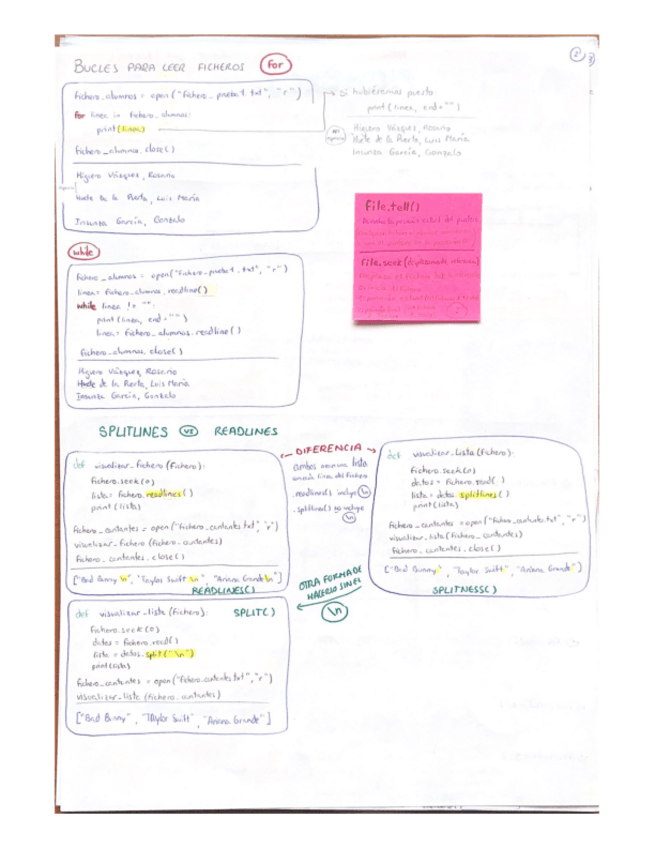 BUCLES PARA LEER FICHEROS for
2
fichero_alumnos = open("fichero_prueba1.txt", "r")
for linea in fichero_alumnos:
print(linea)
fichero_alumnos.close()
Higuero Vázquez, Rosario
Huete de la Puerta, Luis María
Insunza García, Gonzalo
Si hubiéramos puesto:
print(linea, end="")
Higuero Vázquez, Rosario
Huete de la Puerta, Luis María
Insunza García, Gonzalo
file.tell()
file.seek(
while
fichero_alumnos = open("fichero_prueba1.txt", "r")
linea = fichero_alumnos.readline()
while linea != "":
print(linea, end="")
linea = fichero_alumnos.readline()
fichero_alumnos.close()
Higuero Vázquez, Rosario
Huete de la Puerta, Luis María
Insunza García, Gonzalo
SPLITLINES VS READLINES
def visualizar_fichero(fichero):
fichero.seek(0)
lista = fichero.readlines()
print(lista)
fichero_cantantes = open("fichero_cantantes.txt", "r")
visualizar_fichero(fichero_cantantes)
fichero_cantantes.close()
["Bad Bunny\n", "Taylor Swift\n", "Ariana Grande\n"]
READLINES()
DIFERENCIA
ambos lista
línea del fichero
.readlines() incluye \n
.splitlines() no incluye
\n
def visualizar_lista(fichero):
fichero.seek(0)
datos = fichero.read()
lista = datos.splitlines()
print(lista)
fichero_cantantes = open("fichero_cantantes.txt", "r")
visualizar_lista(fichero_cantantes)
fichero_cantantes.close()
["Bad Bunny", "Taylor Swift", "Ariana Grande"]
SPLITNESS()
OTRA FORMA DE
HACERLO SIN EL
\n
def visualizar_lista(fichero): SPLIT()
fichero.seek(0)
datos = fichero.read()
lista = datos.split("\n")
print(lista)
fichero_cantantes = open("fichero_cantantes.txt", "r")
visualizar_lista(fichero_cantantes)
["Bad Bunny", "Taylor Swift", "Ariana Grande"]